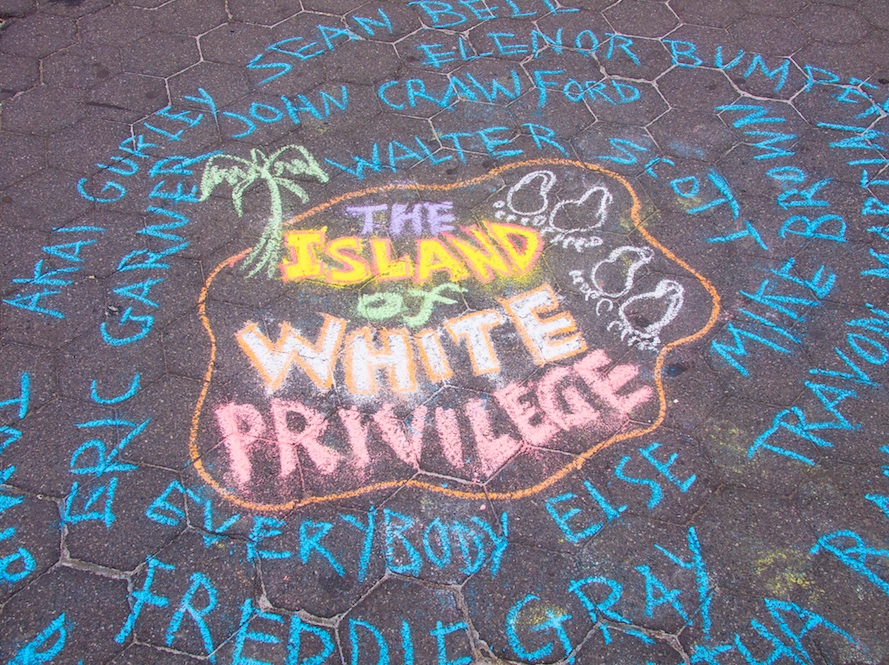 SEAN BELL
ELENOR BUMPE
JOHN CRAWFORD
AKAI GURLEY
WALTER SCOTT
ERIC GARNER
MIKE BROWN
TRAYVON MARTIN
THE
ISLAND
OF
WHITE
PRIVILEGE
EVERYBODY ELSE
FREDDIE GRAY